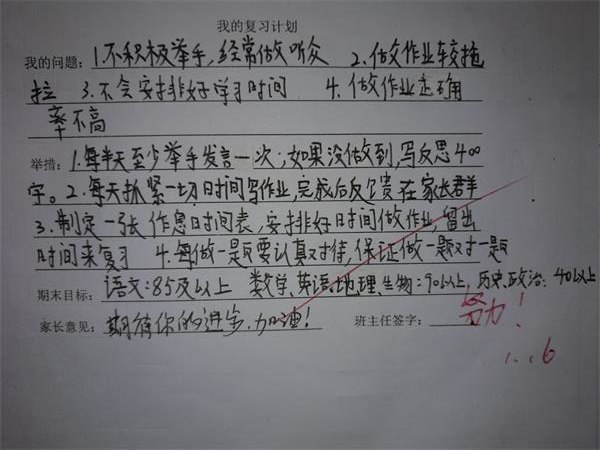 我的复习计划
我的问题: 1.不积极举手,经常做听众 2.做作业较拖
拉 3.不会安排好学习时间 4.做作业正确
率不高
举措: 1.每半天至少举手发言一次,如果没做到,写反思400
字。2.每天抓紧一切时间写作业,完成后反馈在家长群
3.制定一张作息时间表,安排好时间做作业,留出
时间来复习 4.每做一题要认真对待,保证做一题对一题
期末目标: 语文:85及以上 数学、英语、地理、生物:90以上 历史、政治:40以上
家长意见: 期待你的进步,加油! 班主任签字: 努力!
1.16